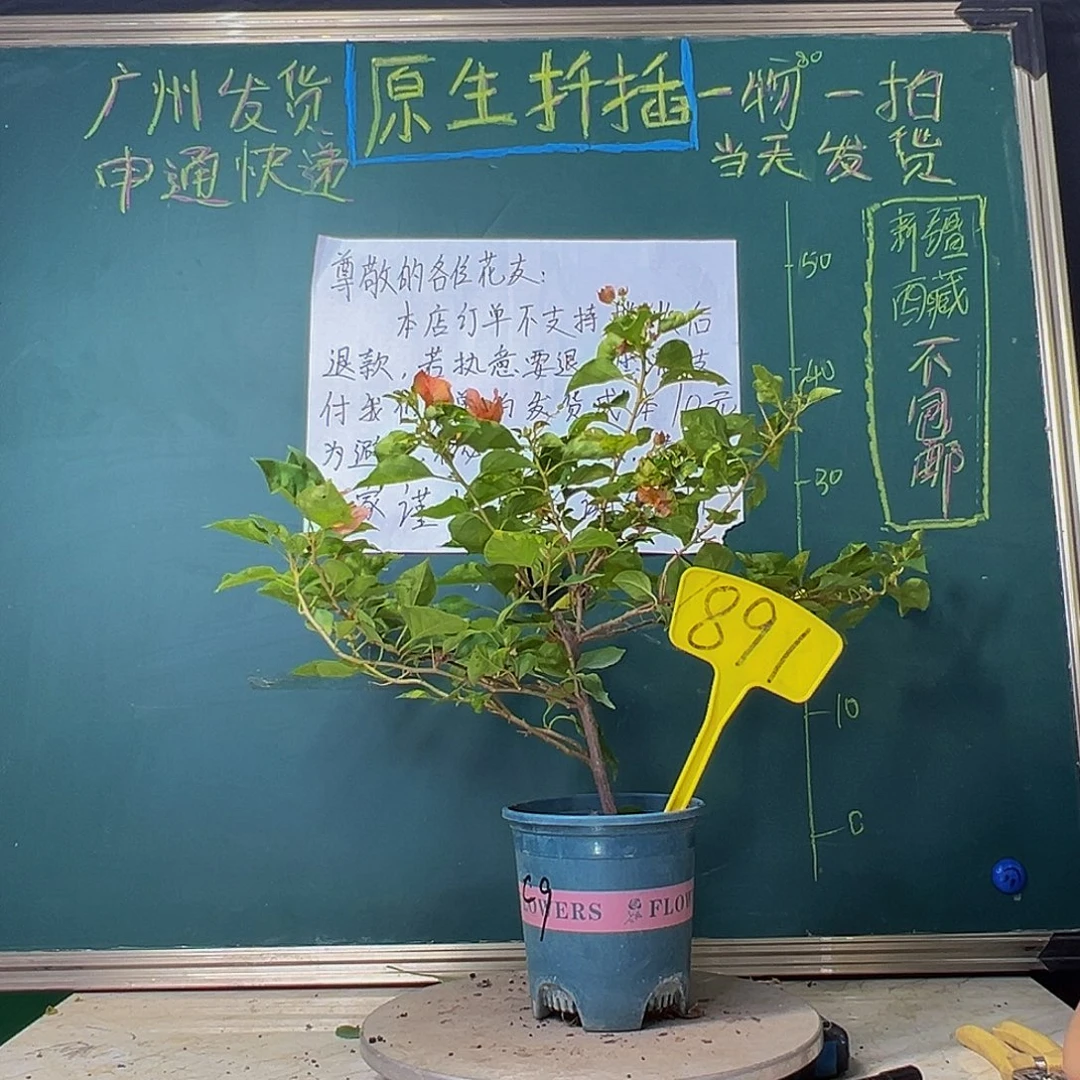 广州发货
原生扦插
一物一拍
申通快递
当天发货
80
新疆
西藏
不
包
邮
尊敬的各位花友:
本店订单不支持 后
退款,若执意要退
付我 发货成本10元
为避
家谨
50
40
30
10
0
891
C9
FLOWERS
FLOW